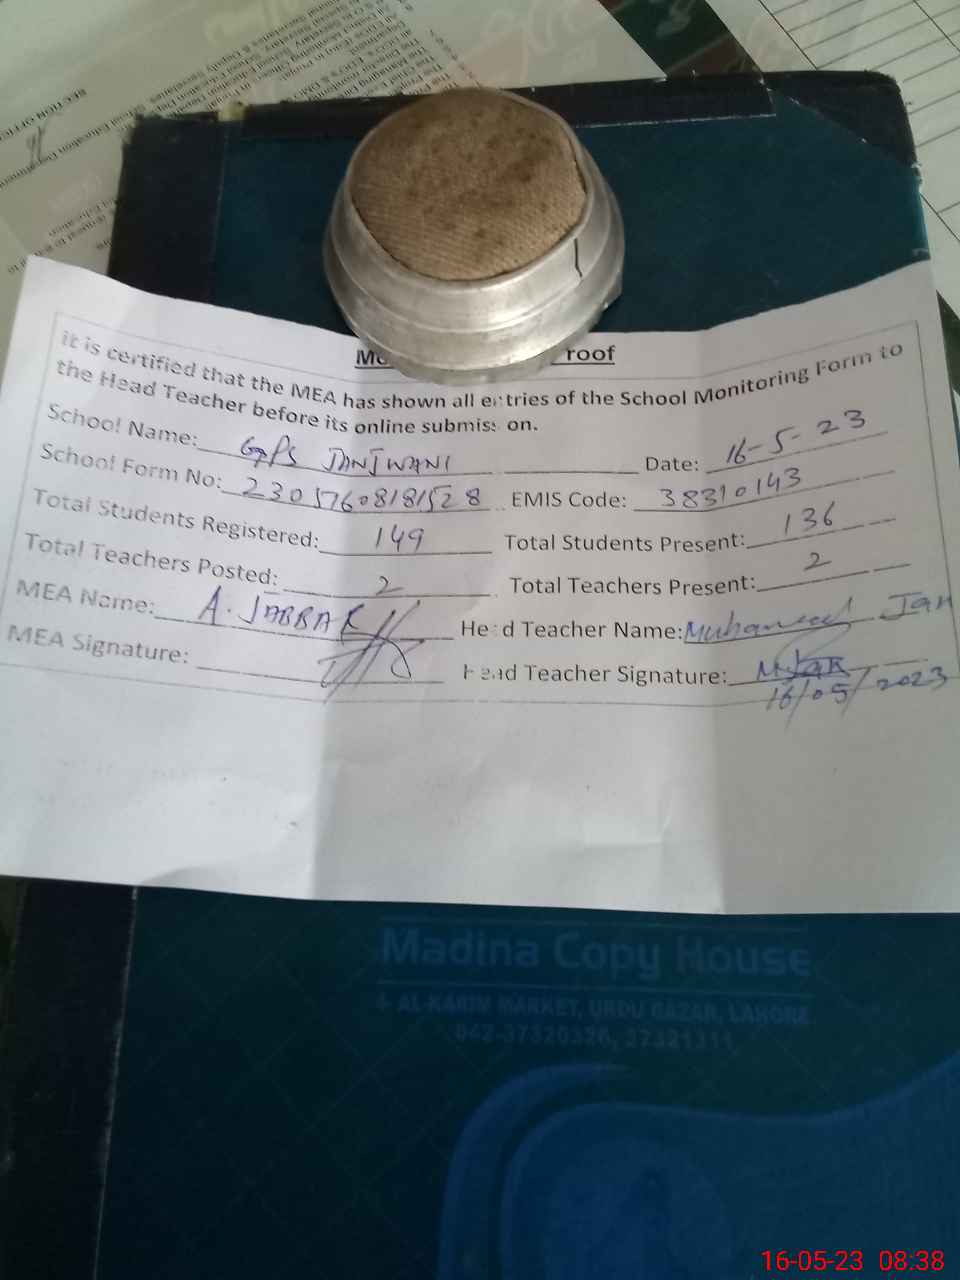 SECTION OFFICE
roof
it is certified that the MEA has shown all entries of the School Monitoring Form to
the Head Teacher before its online submission.
School Name: GPS JANJWANI Date: 16-5-23
School Form No: 23057608181528 EMIS Code: 38310143
Total Students Registered: 149 Total Students Present: 136
Total Teachers Posted: 2 Total Teachers Present: 2
MEA Name: A. JABBAR Head Teacher Name: Muhammad Jan
MEA Signature: Head Teacher Signature: M. Jan
16/05/2023
Madina Copy House
4- AL-KARIM MARKET, URDU BAZAR, LAHORE
042-37320326, 37321311
16-05-23 08:38